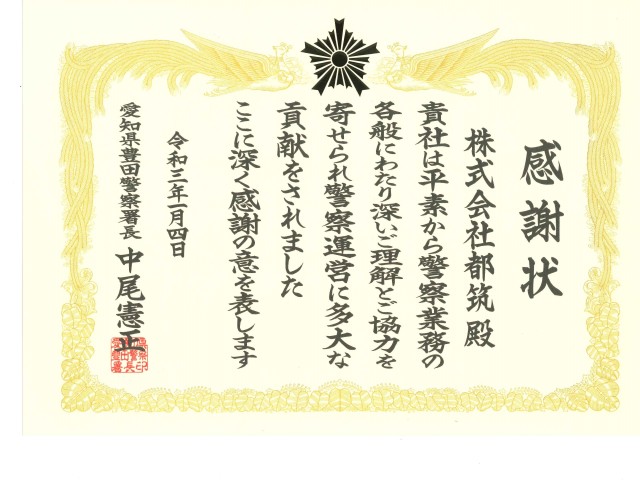 感謝状
株式会社都筑殿
貴社は平素から警察業務の
各般にわたり深いご理解とご協力を
寄せられ警察運営に多大な
貢献をされました
ここに深く感謝の意を表します
令和三年一月四日
愛知県豊田警察署長 中尾憲正